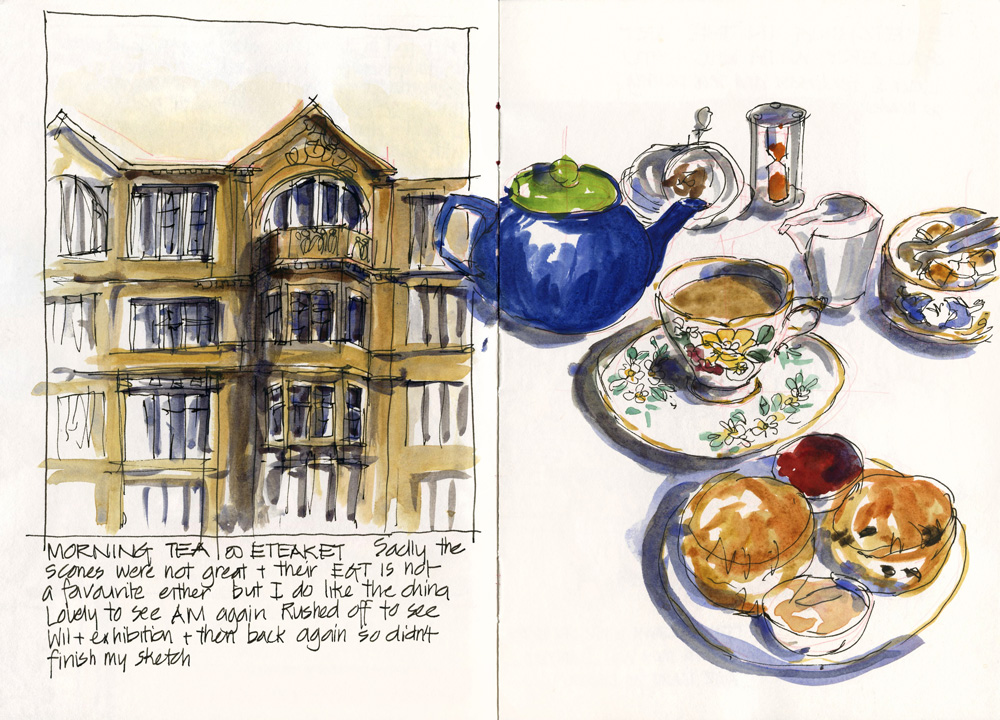 MORNING TEA @ ETEAKET Sadly the
scones were not great + their EGT is not
a favourite either but I do like the china
Lovely to see AM again Rushed off to see
exhibition + then back again so didn't
finish my sketch